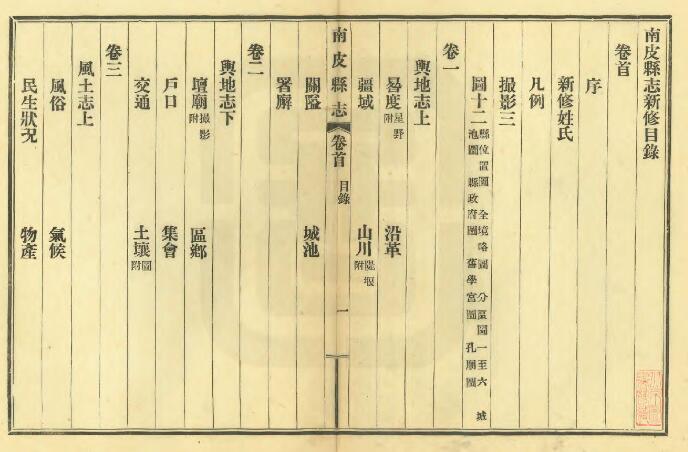 南皮縣志新修目錄
卷首
序
新修姓氏
凡例
撮影三
圖十二 縣位置圖 全境略圖 分區圖一至六 城池圖 縣政府圖 舊學宮圖 孔廟圖
卷一
輿地志上
晷度星野附 沿革
疆域 山川隄堰附
關隘 城池
署廨
南皮縣志 卷首 目錄 一
卷二
輿地志下
壇廟撮影附 區鄉
戶口 集會
交通 土壤圖附
卷三
風土志上
風俗 氣候
民生狀況 物產